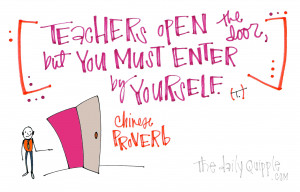 TEACHERS OPEN the door,
but YOU MUST ENTER
by YOURSELF.
Chinese
PROVERb
the daily quipple
.com